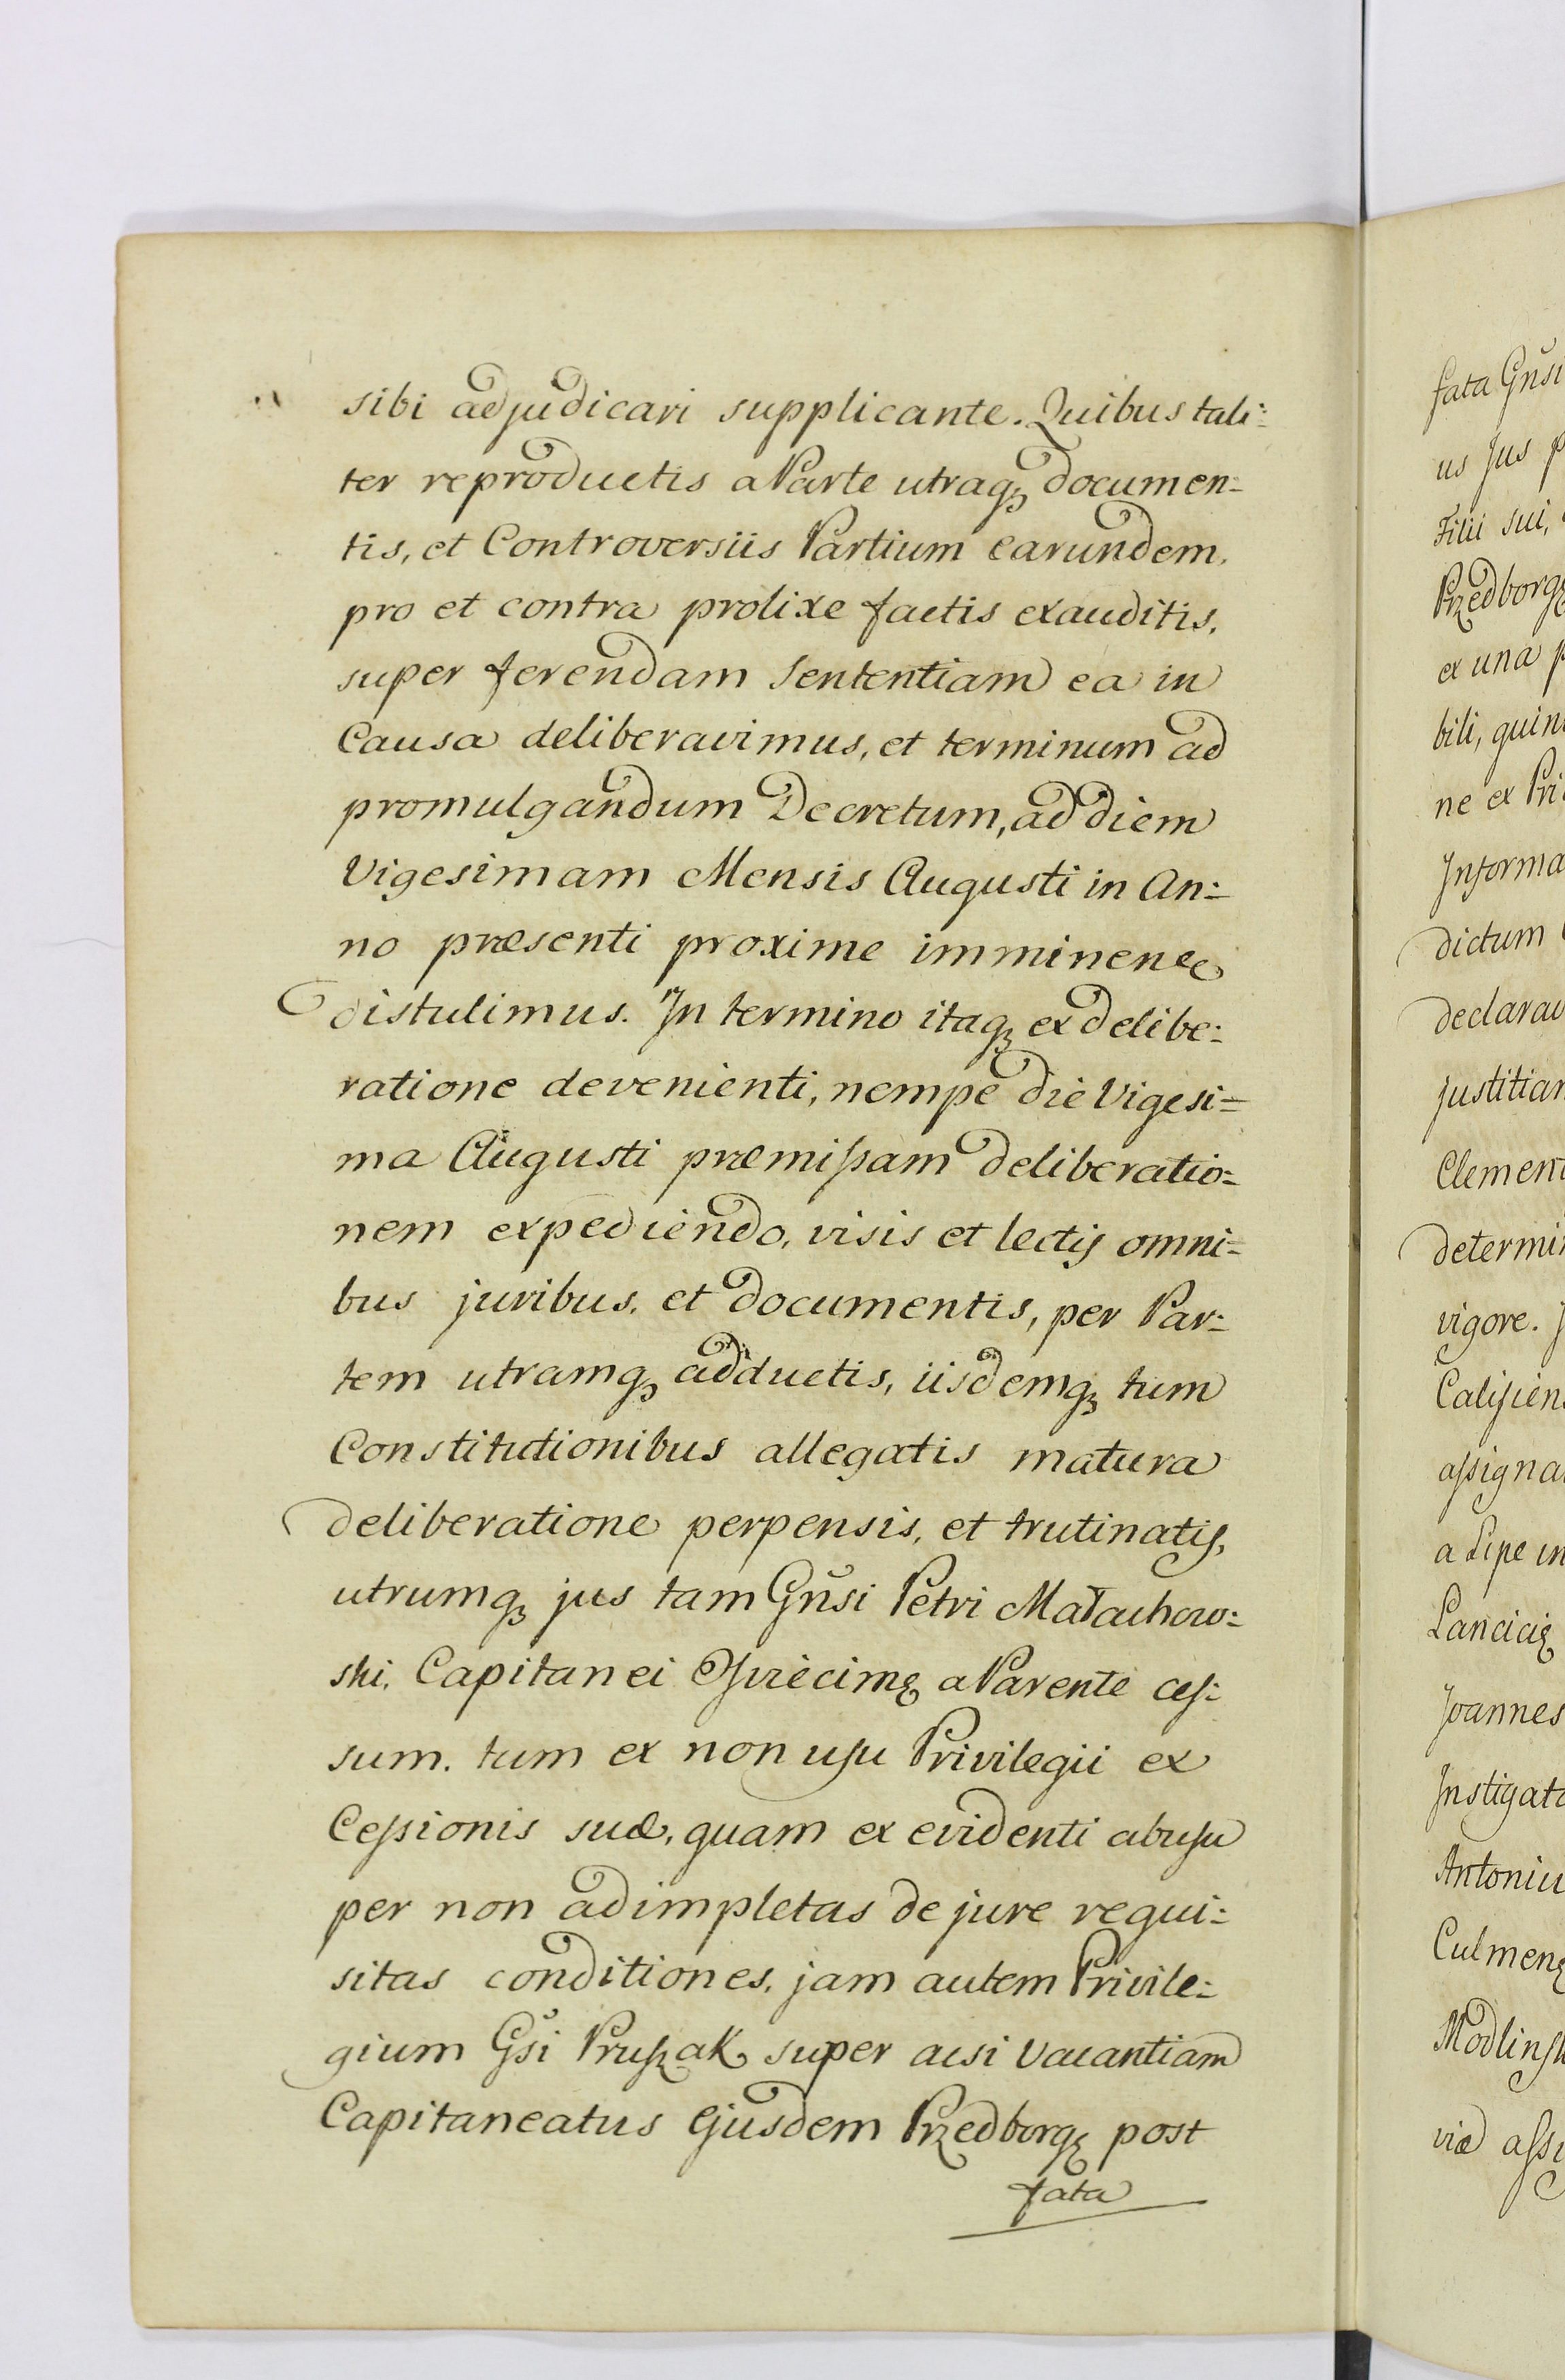 sibi adjudicari supplicante. Quibus tali=
ter reproductis a Parte utraq3 documen=
tis, et Controversiis Partium earundem,
pro et contra prolixe factis exauditis,
super ferendam Sententiam ea in
Causa deliberavimus, et terminum ad
promulgandum Decretum, ad diem
Vigesimam Mensis Augusti in An=
no præsenti proxime imminen
distulimus. In termino itaq3 ex delibe=
ratione devenienti, nempe die Vigesi=
ma Augusti præmissam deliberatio=
nem expediendo, visis et lectis omni=
bus juribus, et documentis, per Par=
tem utramq3 adductis, iisdemq3 tum
Constitutionibus allegatis matura
deliberatione perpensis, et trutinatis,
utrumq3 jus tam Gnsi Petri Małachow=
ski, Capitanei a Parente ces=
sum, tum ex non usu Privilegii ex
Cessionis suæ, quam ex evidenti abusu
per non adimpletas de jure requi=
sitas conditiones, jam autem Privile=
gium Gsi Pruszak super acsi vacantiam
Capitaneatus Ejusdem Przedborg post
fata
fata Gnsi
us Jus p
Filii sui,
Przedborg
ex una p
bili, quin
ne ex Pri
Informa
dictum
declarav
justitiam
Clement
determi
vigore.
Calisien
assigna
a Lipe in
Lancici
Joannes
Instigato
Antoniu
Culmen
Modlinsk
viæ assi